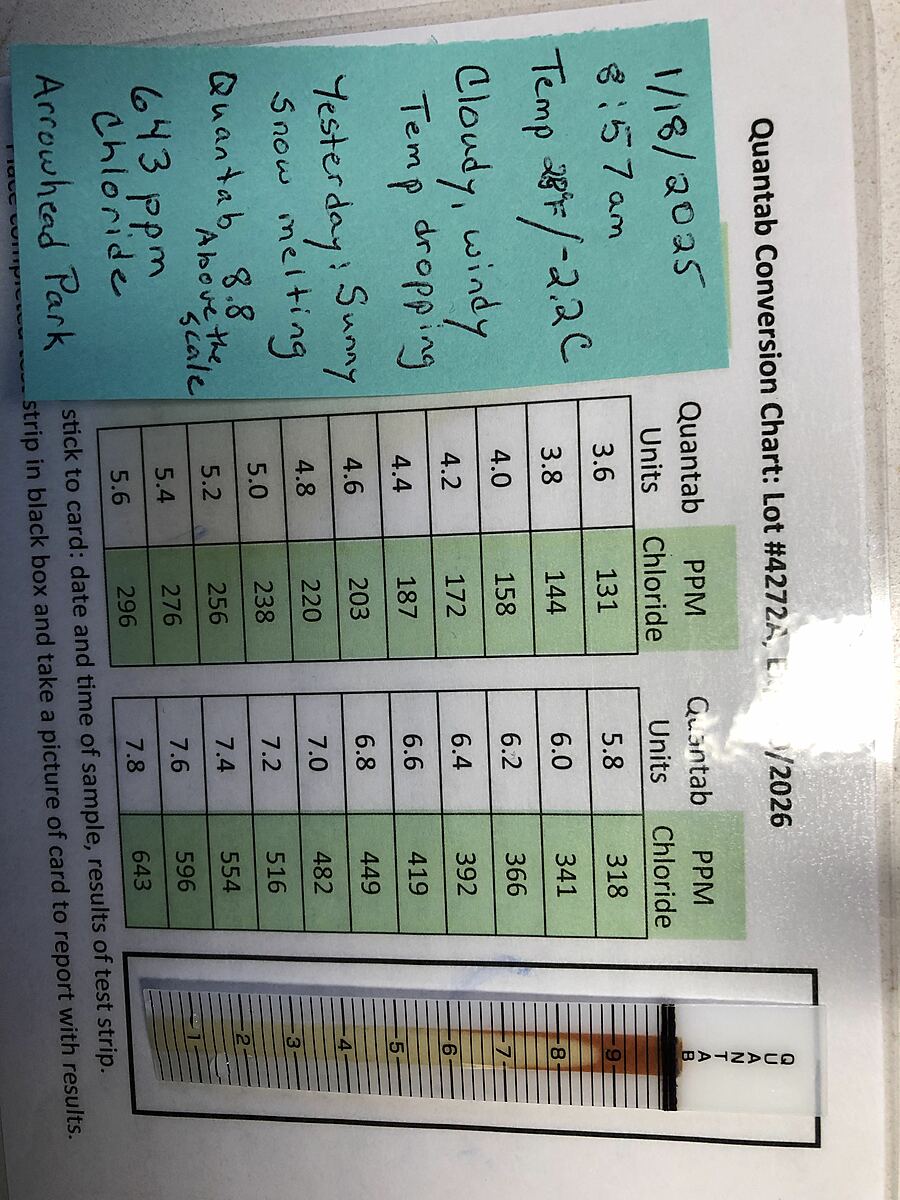 Quantab Conversion Chart: Lot #4272A, /2026
1/18/2025
8:57am
Temp 28°F/-2.2C
Cloudy, windy
Temp dropping
Yesterday: Sunny
Snow melting
Quantab 8.8
Above the
scale
643 ppm
Chloride
Arrowhead Park
Quantab Units PPM Chloride
3.6 131
3.8 144
4.0 158
4.2 172
4.4 187
4.6 203
4.8 220
5.0 238
5.2 256
5.4 276
5.6 296
Quantab Units PPM Chloride
5.8 318
6.0 341
6.2 366
6.4 392
6.6 419
6.8 449
7.0 482
7.2 516
7.4 554
7.6 596
7.8 643
QUANTAB
9
8
7
6
5
4
3
2
1
stick to card: date and time of sample, results of test strip.
strip in black box and take a picture of card to report with results.